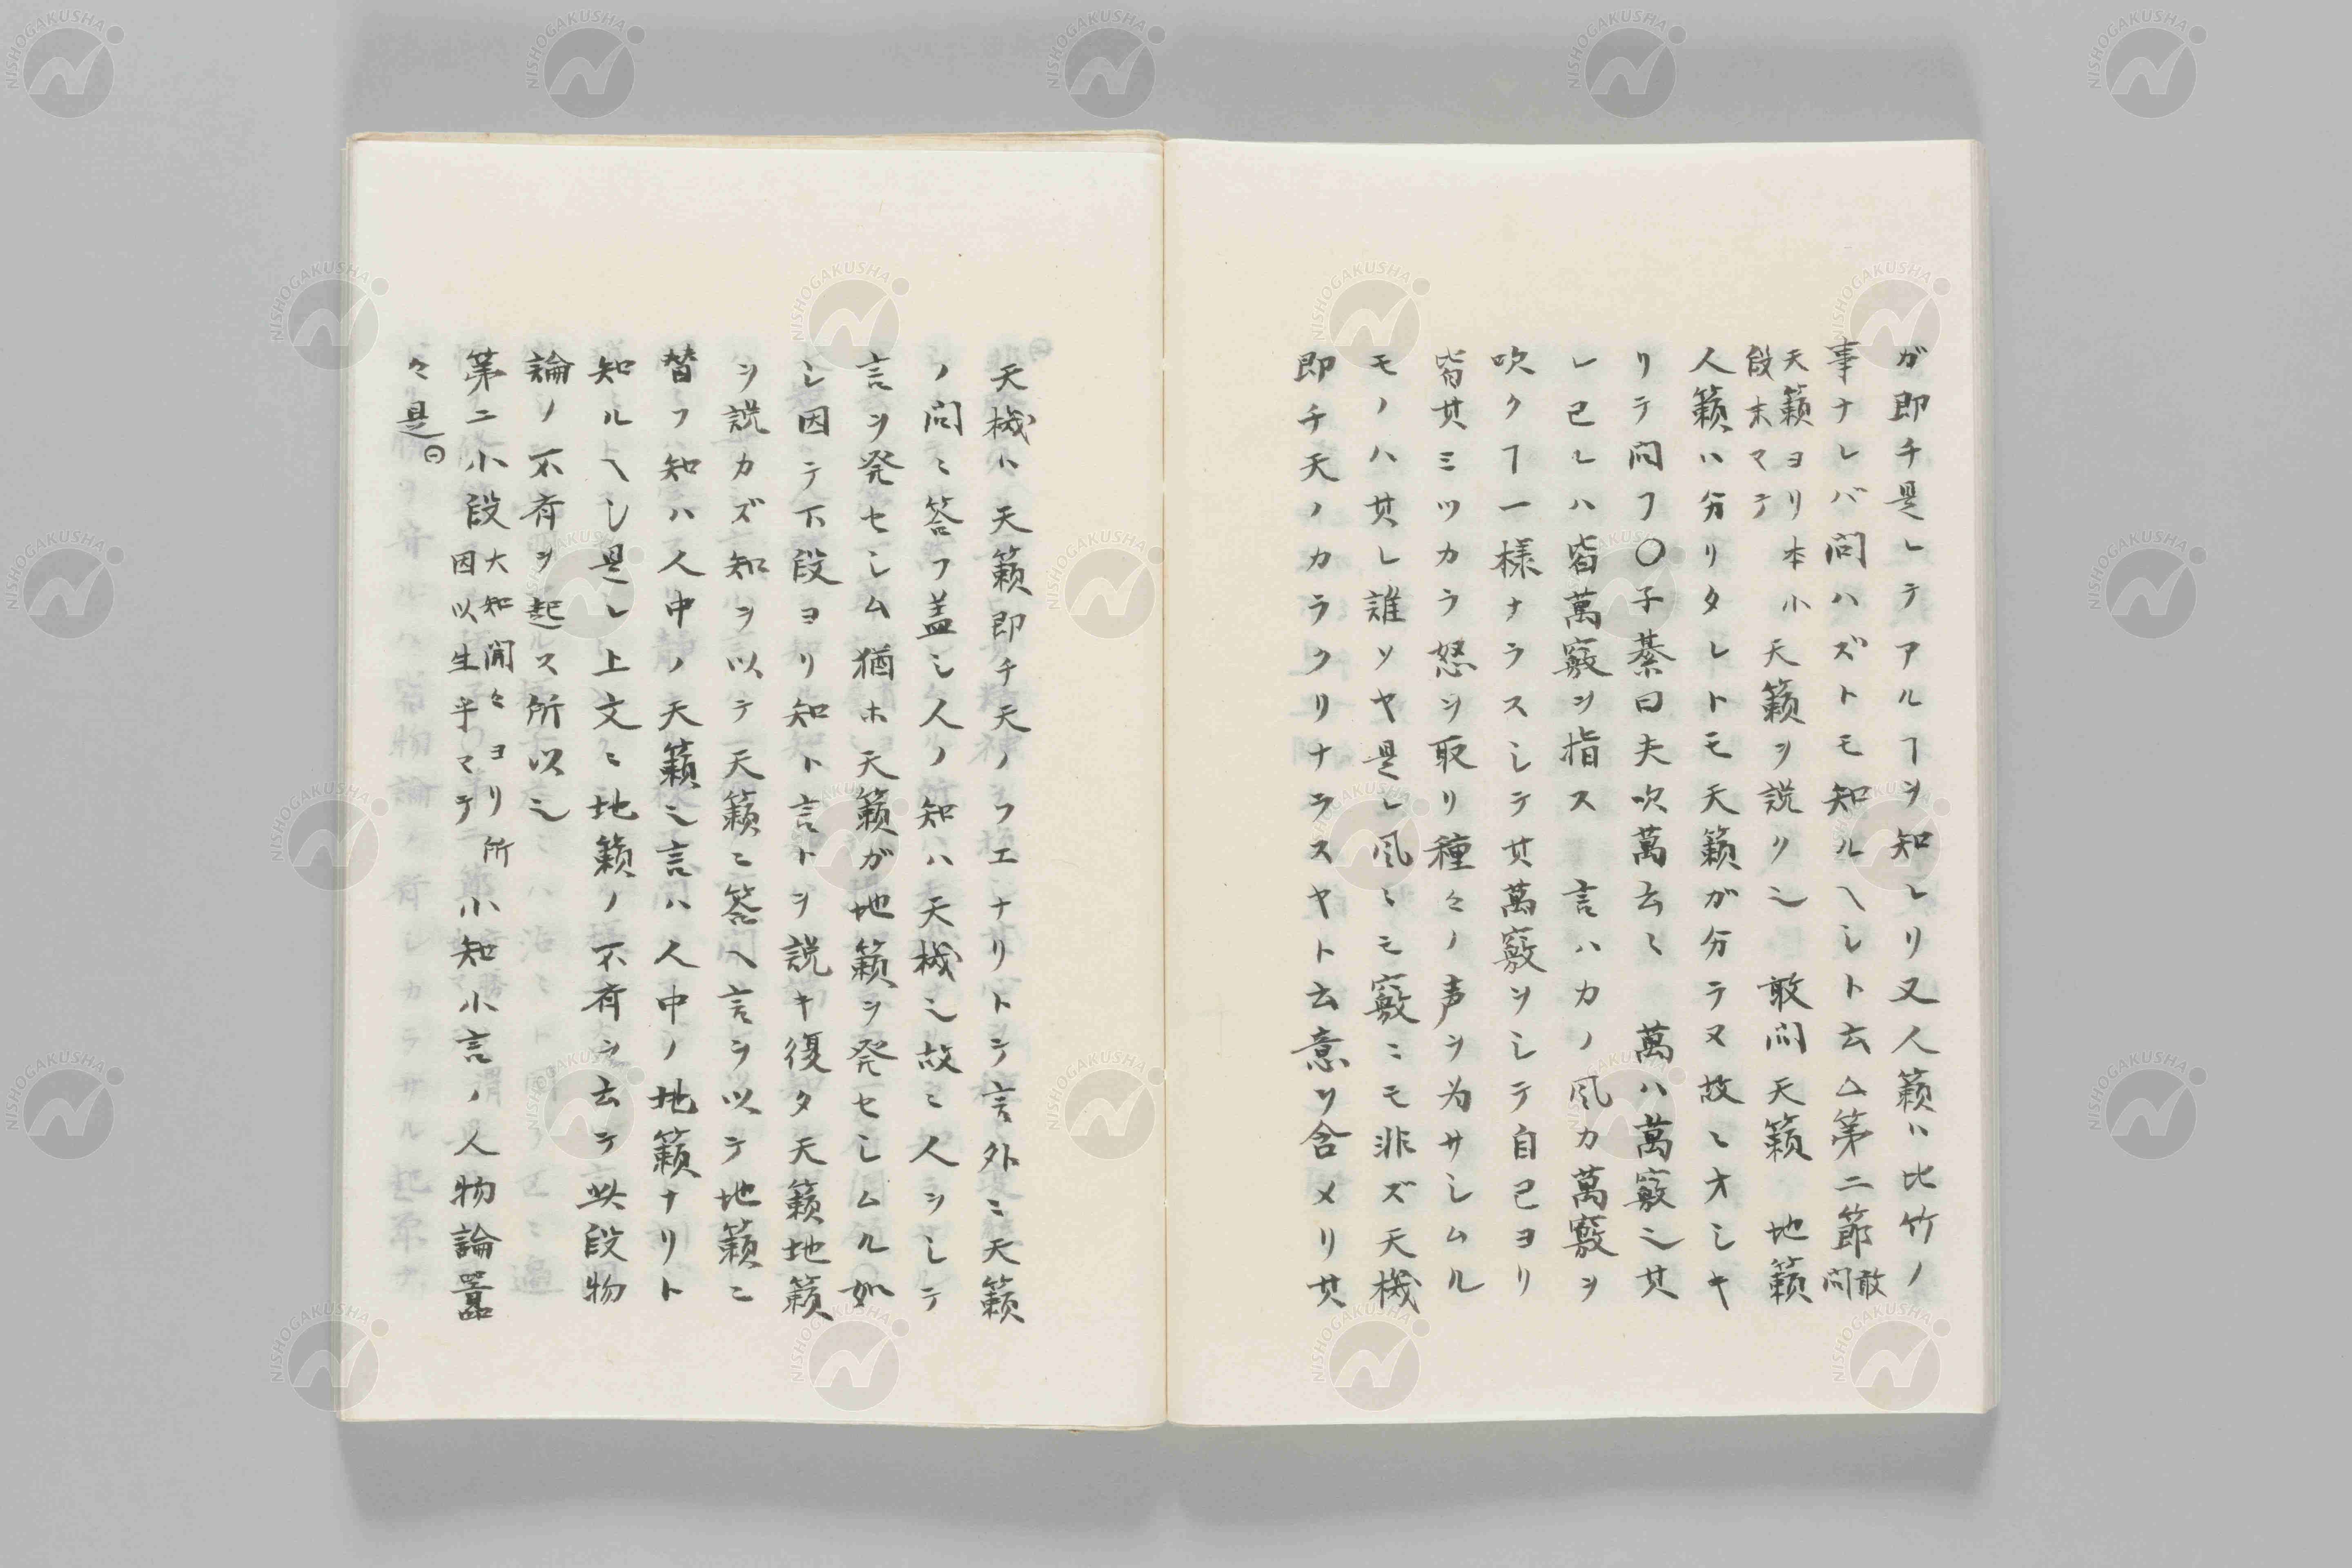 ガ即チ是レテアルヿヲ知レリ又人籟ハ比竹ノ
事ナレバ問ハズトモ知ルヘシト云△第二節敢問
天籟ヨリ本小
段末マテ
天籟ヲ説ク也 敢問天籟 地籟
人籟ハ分リタレトモ天籟ガ分テヌ故ニオシキ
リテ問フ〇子綦曰夫吹萬云々 萬ハ萬竅也其
レ已レハ皆萬竅ヲ指ス 言ハカノ風カ萬竅ヲ
吹クヿ一様ナラスシテ其萬竅ヲシテ自己ヨリ
皆其ミツカラ怒ヲ取リ種々ノ声ヲ為サシムル
モノハ其レ誰ソヤ是レ風ニモ竅ニモ非ズ天機
即チ天ノカラクリナラスヤト云意ヲ含メリ其
天機ハ天籟即チ天ノフエナリトシ言外ニ天籟
ノ問ニ答フ盖シ人ノ知ハ天機也故ニ人ヲシテ
言ヲ発セシム猶ホ天籟ガ地籟ヲ発セシムル如
シ因テ下段ヨリ知ト言トヲ説キ復タ天籟地籟
ヲ説カズ知ヲ以テ天籟ニ答ヘ言ヲ以テ地籟ニ
替フ知ハ人中ノ天籟也言ハ人中ノ地籟ナリト
知ルヘシ是レ上文ニ地籟ノ不斉ヲ云テ此段物
論ノ不斉ヲ起ス所以也
第二小段
大知閒々ヨリ所
因以生乎マテ
小知小言ノ人物論囂
々是㊀
NISHOGAKUSHA